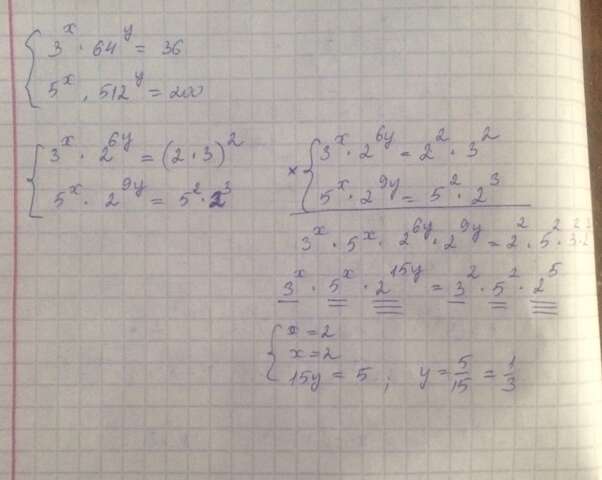 3^x · 64^y = 36
5^x · 512^y = 200
3^x · 2^{6y} = (2 · 3)^2
5^x · 2^{9y} = 5^2 · 2^3
× 3^x · 2^{6y} = 2^2 · 3^2
5^x · 2^{9y} = 5^2 · 2^3
3^x · 5^x · 2^{6y} · 2^{9y} = 2^2 · 5^2 ·
3^x · 5^x · 2^{15y} = 3^2 · 5^2 · 2^5
x = 2
x = 2
15y = 5 ; y = 5/15 = 1/3